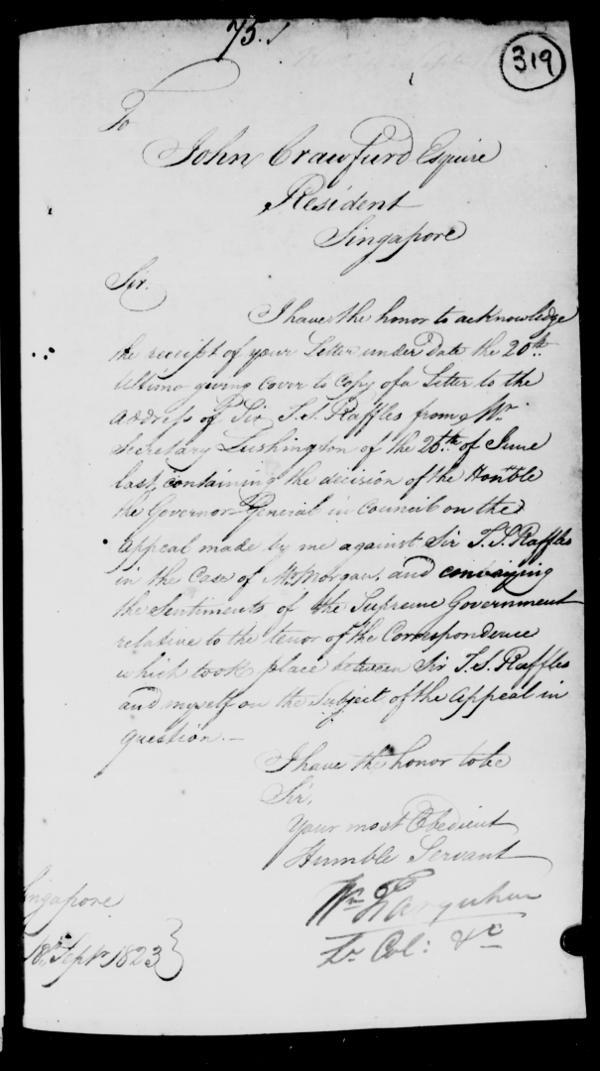 75.
319
To
John Crawfurd Esquire
Resident
Singapore
Sir.
I have the honor to acknowledge
the receipt of your Letter under date the 20th
Ultimo giving cover to Copy of a Letter to the
address of Sir T.S. Raffles from Mr
Secretary Lushington of the 26th of June
last, containing the decision of the Honble
the Governor-General in Council on the
Appeal made by me against Sir T.S. Raffles
in the Case of Mr Morgan, and conveying
the Sentiments of the Supreme Government
relative to the tenor of the Correspondence
which took place between Sir T.S. Raffles
and myself on the Subject of the Appeal in
question.—
I have the honor to be
Sir,
Your most Obedient
Humble Servant
Wm Farquhar
Lt Col: &c
Singapore
18th Septr 1823